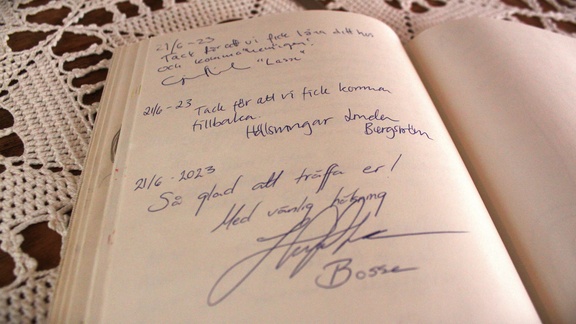 21/6-23
Tack för att vi fick låna ditt hus
och
"Lasse"
21/6-23 Tack för att vi fick komma
tillbaka.
Hälsningar Linda
Bergström
21/6-2023
Så glad att träffa er!
Med vänlig hälsning
Bosse